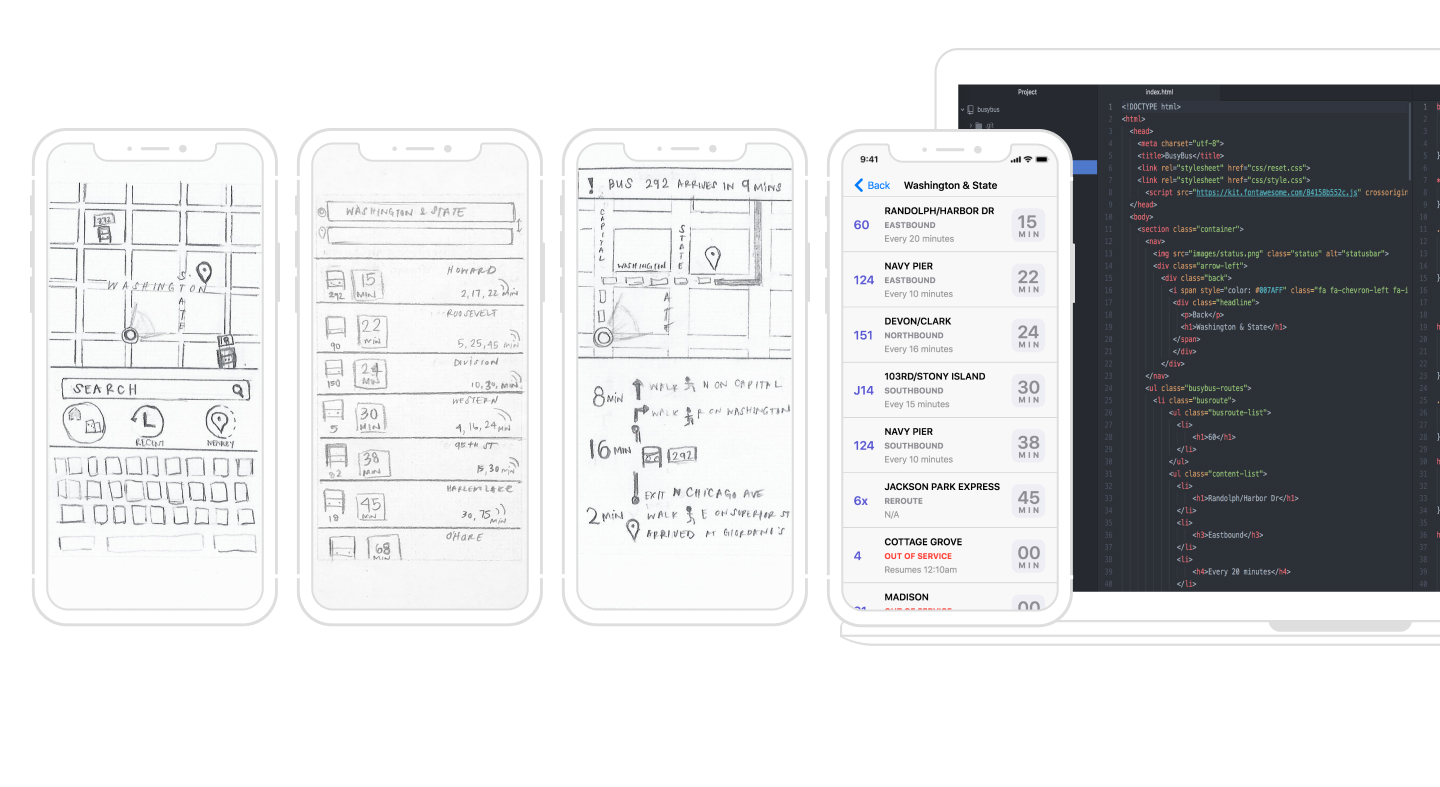 292
S.
WASHINGTON
ATE
18
SEARCH
RECENT
NEARBY
WASHINGTON & STATE
15
MIN
292
HOWARD
2, 17, 22 MIN
22
MIN
90
ROOSEVELT
5, 25, 45 MIN
24
MIN
150
DIVISION
10, 30, MIN
30
MIN
5
WESTERN
4, 16, 24 MIN
38
MIN
82
95TH ST
15, 30 MIN
45
MIN
18
HARLEM LAKE
30, 75 MIN
68
MIN
O'HARE
! BUS 292 ARRIVES IN 9 MINS
CAPITAL
STATE
WASHINGTON
8 MIN
WALK N ON CAPITAL
WALK R ON WASHINGTON
16 MIN
292
EXIT N CHICAGO AVE
2 MIN
WALK E ON SUPERIOR ST
ARRIVED AT GIORDANO'S
9:41
Back
Washington & State
60
RANDOLPH/HARBOR DR
EASTBOUND
Every 20 minutes
15
MIN
124
NAVY PIER
EASTBOUND
Every 10 minutes
22
MIN
151
DEVON/CLARK
NORTHBOUND
Every 16 minutes
24
MIN
J14
103RD/STONY ISLAND
SOUTHBOUND
Evey 15 minutes
30
MIN
124
NAVY PIER
SOUTHBOUND
Every 10 minutes
38
MIN
6x
JACKSON PARK EXPRESS
REROUTE
N/A
45
MIN
4
COTTAGE GROVE
OUT OF SERVICE
Resumes 12:10am
00
MIN
MADISON
OUT OF SERVICE
00
Project
busybus
.git
index.html
1 <!DOCTYPE html>
2 <html>
3 <head>
4 <meta charset="utf-8">
5 <title>BusyBus</title>
6 <link rel="stylesheet" href="css/reset.css">
7 <link rel="stylesheet" href="css/style.css">
8 <script src="https://kit.fontawesome.com/84158b552c.js" crossorigin
9 </head>
10 <body>
11 <section class="container">
12 <nav>
13 <img src="images/status.png" class="status" alt="statusbar">
14 <div class="arrow-left">
15 <div class="back">
16 <i span style="color: #007AFF" class="fa fa-chevron-left fa-i
17 <div class="headline">
18 <p>Back</p>
19 <h1>Washington & State</h1>
20 </span>
21 </div>
22 </div>
23 </nav>
24 <ul class="busybus-routes">
25 <li class="busroute">
26 <ul class="busroute-list">
27 <li>
28 <h1>60</h1>
29 </li>
30 </ul>
31 <ul class="content-list">
32 <li>
33 <h1>Randolph/Harbor Dr</h1>
34 </li>
35 <li>
36 <h3>Eastbound</h3>
37 </li>
38 <li>
39 <h4>Every 20 minutes</h4>
40 </li>